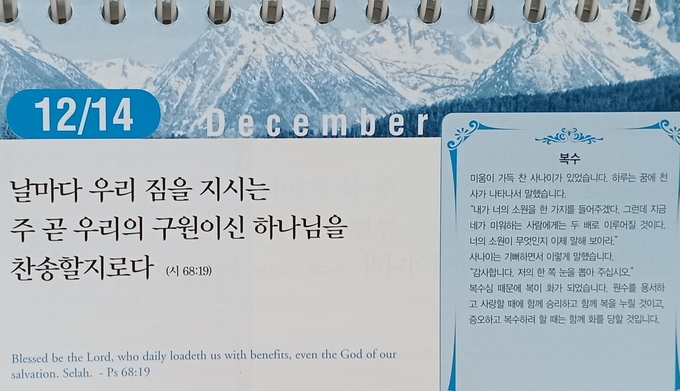 12/14
December
날마다 우리 짐을 지시는
주 곧 우리의 구원이신 하나님을
찬송할지로다 (시 68:19)
Blessed be the Lord, who daily loadeth us with benefits, even the God of our
salvation. Selah. - Ps 68:19
복수
미움이 가득 찬 사나이가 있었습니다. 하루는 꿈에 천
사가 나타나서 말했습니다.
"내가 너의 소원을 한 가지를 들어주겠다. 그런데 지금
네가 미워하는 사람에게는 두 배로 이루어질 것이다.
너의 소원이 무엇인지 이제 말해 보아라."
사나이는 기뻐하면서 이렇게 말했습니다.
"감사합니다. 저의 한 쪽 눈을 뽑아 주십시오."
복수심 때문에 복이 화가 되었습니다. 원수를 용서하
고 사랑할 때에 함께 승리하고 함께 복을 누릴 것이고,
증오하고 복수하려 할 때는 함께 화를 당할 것입니다.